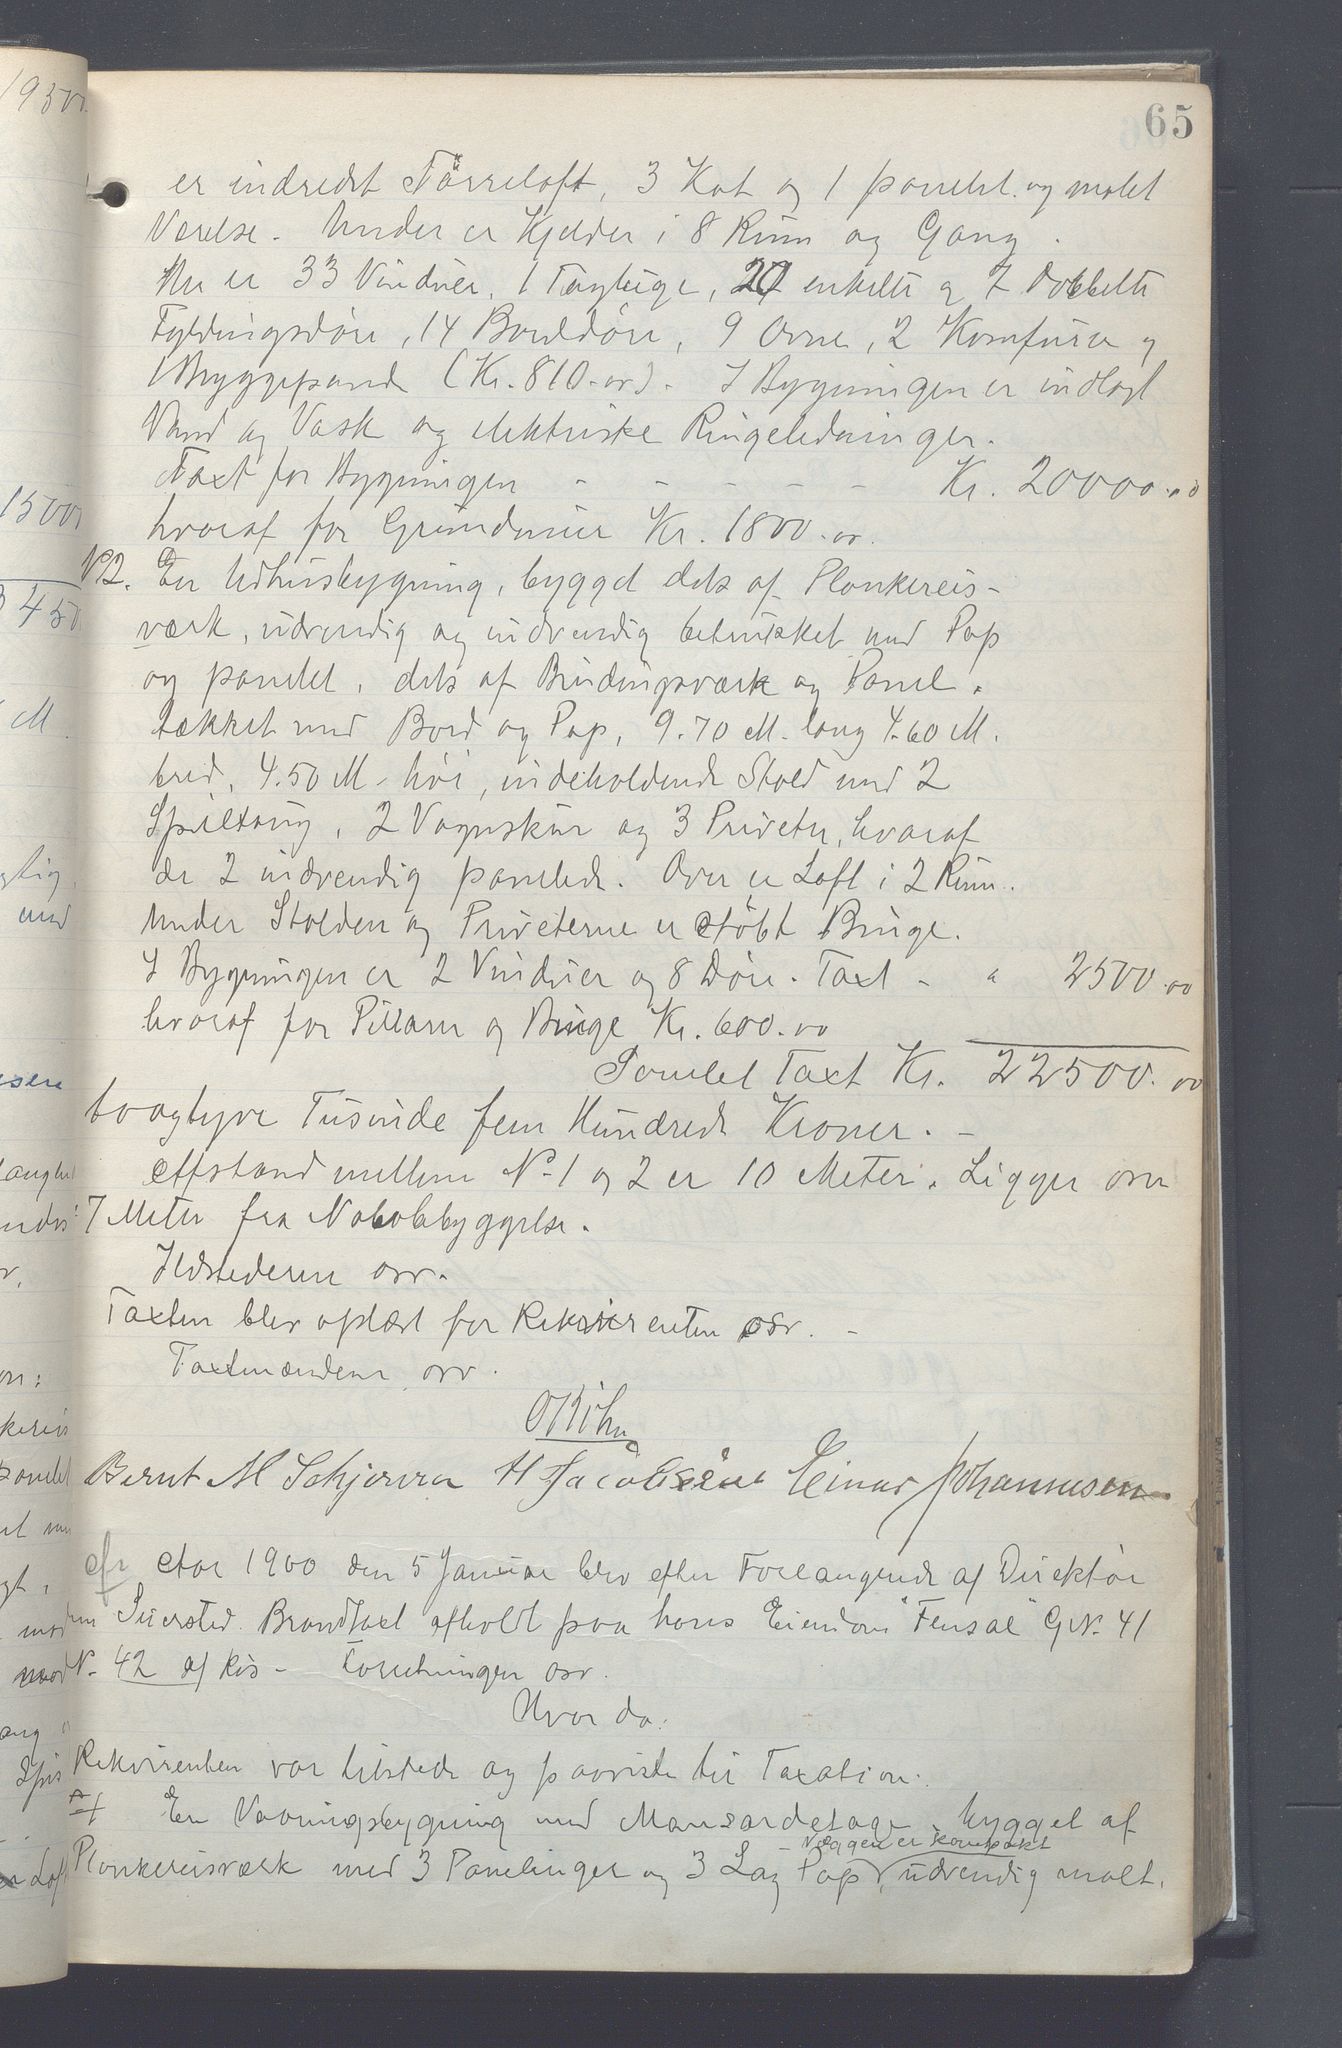 65
er indredet Tørreloft, 3 Kot og 1 panelet og malet
Værelse. Under er Kjelder i 8 Rum og Gang.
Der er 33 Vinduer, 1 Tagluge, 20 enkelte og 7 dobbelte
Fyldingsdøre, 14 Borddøre, 9 Ovne, 2 Komfurer og
1 Bryggepande (Kr. 810.00). I Bygningen er indlagt
Vand og Vask og elektriske Ringeledninger.
Taxt for Bygningen - - - - - Kr. 20000.00
hvoraf for Grundmur Kr. 1800.00.
No 2. En Udhusbygning, bygget dels af Plankereis-
værk, udvendig og indvendig betrukket med Pap
og panelet, dels af Bindingsværk og Panel,
tækket med Bord og Pap, 9.70 M. lang 4.60 M.
bred, 4.50 M. høi, indeholdende Stald med 2
Spiltaug, 2 Vognskur og 3 Priveter, hvoraf
de 2 indvendig panelede. Over er Loft i 2 Rum.
Under Stalden og Priveterne er støbt Binge.
I Bygningen er 2 Vinduer og 8 Døre. Taxt - " 2500.00
hvoraf for Pillarer og Binge Kr. 600.00
Samlet Taxt Kr. 22500.00
toogtyve Tusinde fem Hundrede Kroner. -
Afstand mellem No 1 og 2 er 10 Meter. Ligger over
7 Meter fra Nabobebyggelse.
Ildstederne osv.
Taxten blev oplæst for Rekvirenten osv. -
Taxtmændene osv.
Bernt M Schjerven H Jacobsen Einar Johannesen
cfr Aar 1900 den 5 Januar blev efter Forlangende af Direktør
Suersted Brandtaxt afholdt paa hans Eiendom "Fensal" G.N. 41
N. 42 af Ris - Forretningen osv.
Hvor da:
Rekvirenten var tilstede og paaviste til Taxation:
En Vaaningsbygning med Mansardetage, bygget af
Væggen er kompakt
Plankereisværk med 3 Panelinger og 3 Lag Pap, udvendig malt,